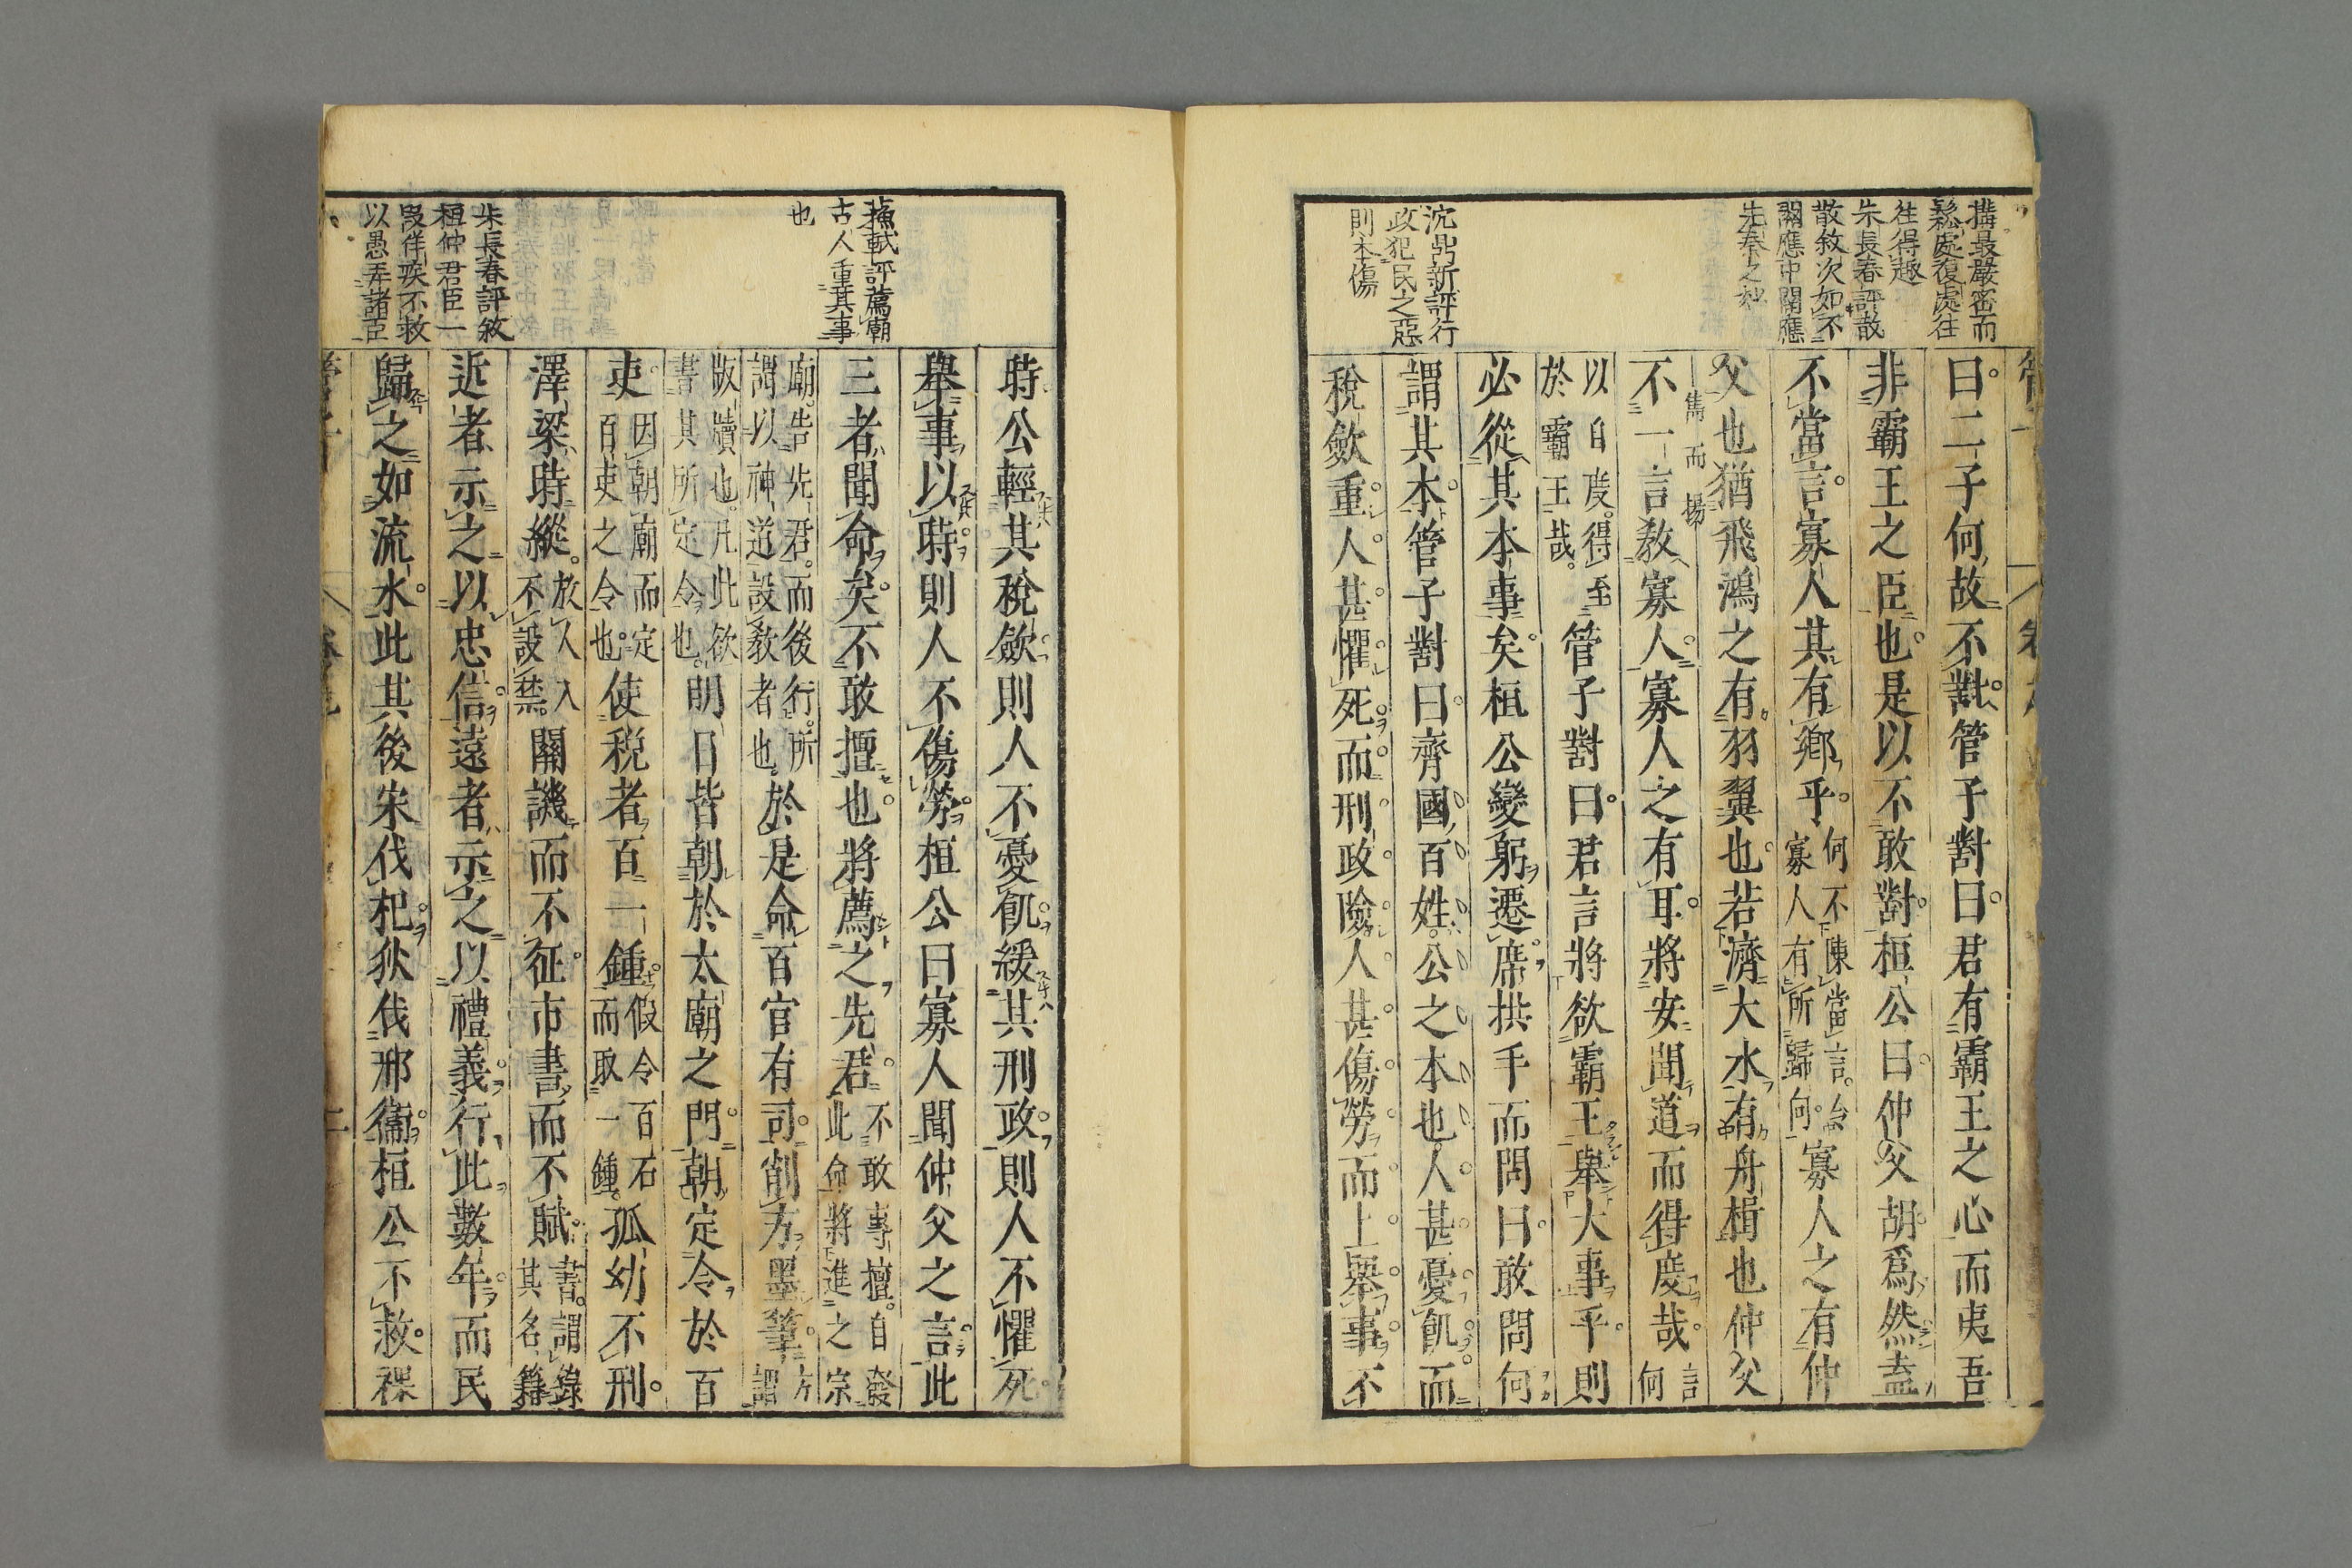 構最嚴密而
鬆處復處往
往得趣
朱長春評散
散敘次如不
關應中關應
先秦之妙
沈鼎新評行
政犯民之惡
則本傷
曰二子何故不對管子對曰君有霸王之心而夷吾
非霸王之臣也是以不敢對桓公曰仲父胡爲然盍
不當言寡人其有鄉乎何不陳當言令寡人有所歸向寡人之有仲
父也猶飛鴻之有羽翼也若濟大水有舟楫也仲父
雋而揚
不一言教寡人寡人之有耳將安聞道而得度哉言何
以自度得至於霸王哉管子對曰君言將欲霸王舉大事乎則
必從其本事矣桓公變躬遷席拱手而問曰敢問何
謂其本管子對曰齊國百姓公之本也人甚憂飢而
稅斂重人甚懼死而刑政險人甚傷勞而上舉事不
蘇軾評薦廟
古人重其事
也
朱長春評敘
桓仲君臣一
段佯疾不救
以愚弄諸臣
時公輕其稅斂則人不憂飢緩其刑政則人不懼死
舉事以時則人不傷勞桓公曰寡人聞仲父之言此
三者聞命矣不敢擅也將薦之先君不敢專擅自發此命將進之宗
廟告先君而後行所謂以神道設教者也於是命百官有司削方墨筆方謂
版牘也凡此欲書其所定令也明日皆朝於太廟之門朝定令於百
吏因朝廟而定百吏之令也使稅者百一鍾假令百石而取一鍾孤幼不刑
澤梁時縱放人入不設禁關譏而不征市書而不賦書謂錄其名籍
近者示之以忠信遠者示之以禮義行此數年而民
歸之如流水此其後宋伐杞狄伐邢衞桓公不救裸